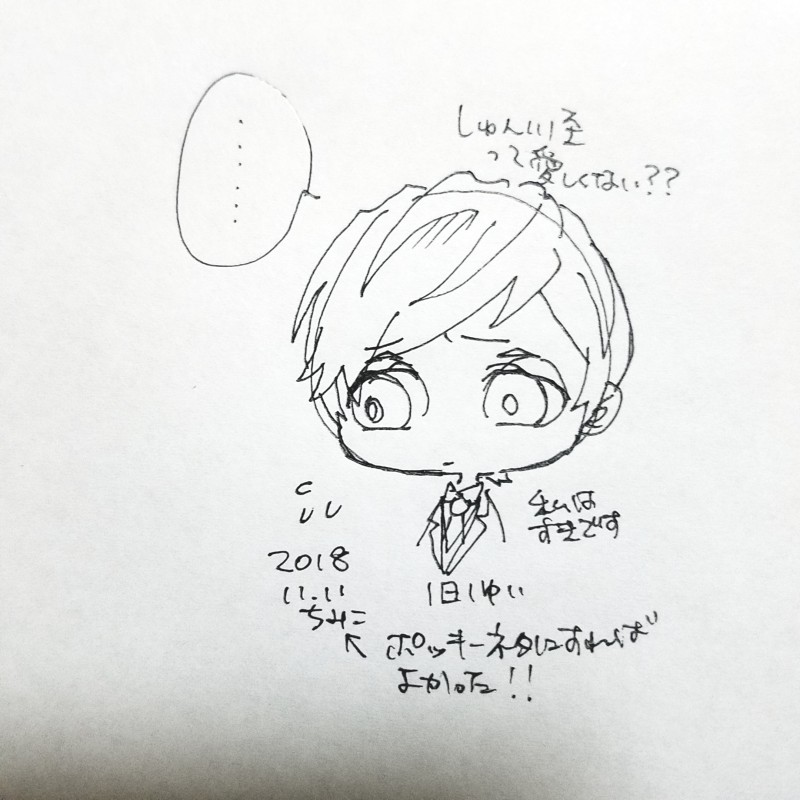 しゅん川至
って愛しくない??
私は
すきです
2018
11.11
ちみこ
旧しゆい
← ポッキーネタにすれば
よかった!!